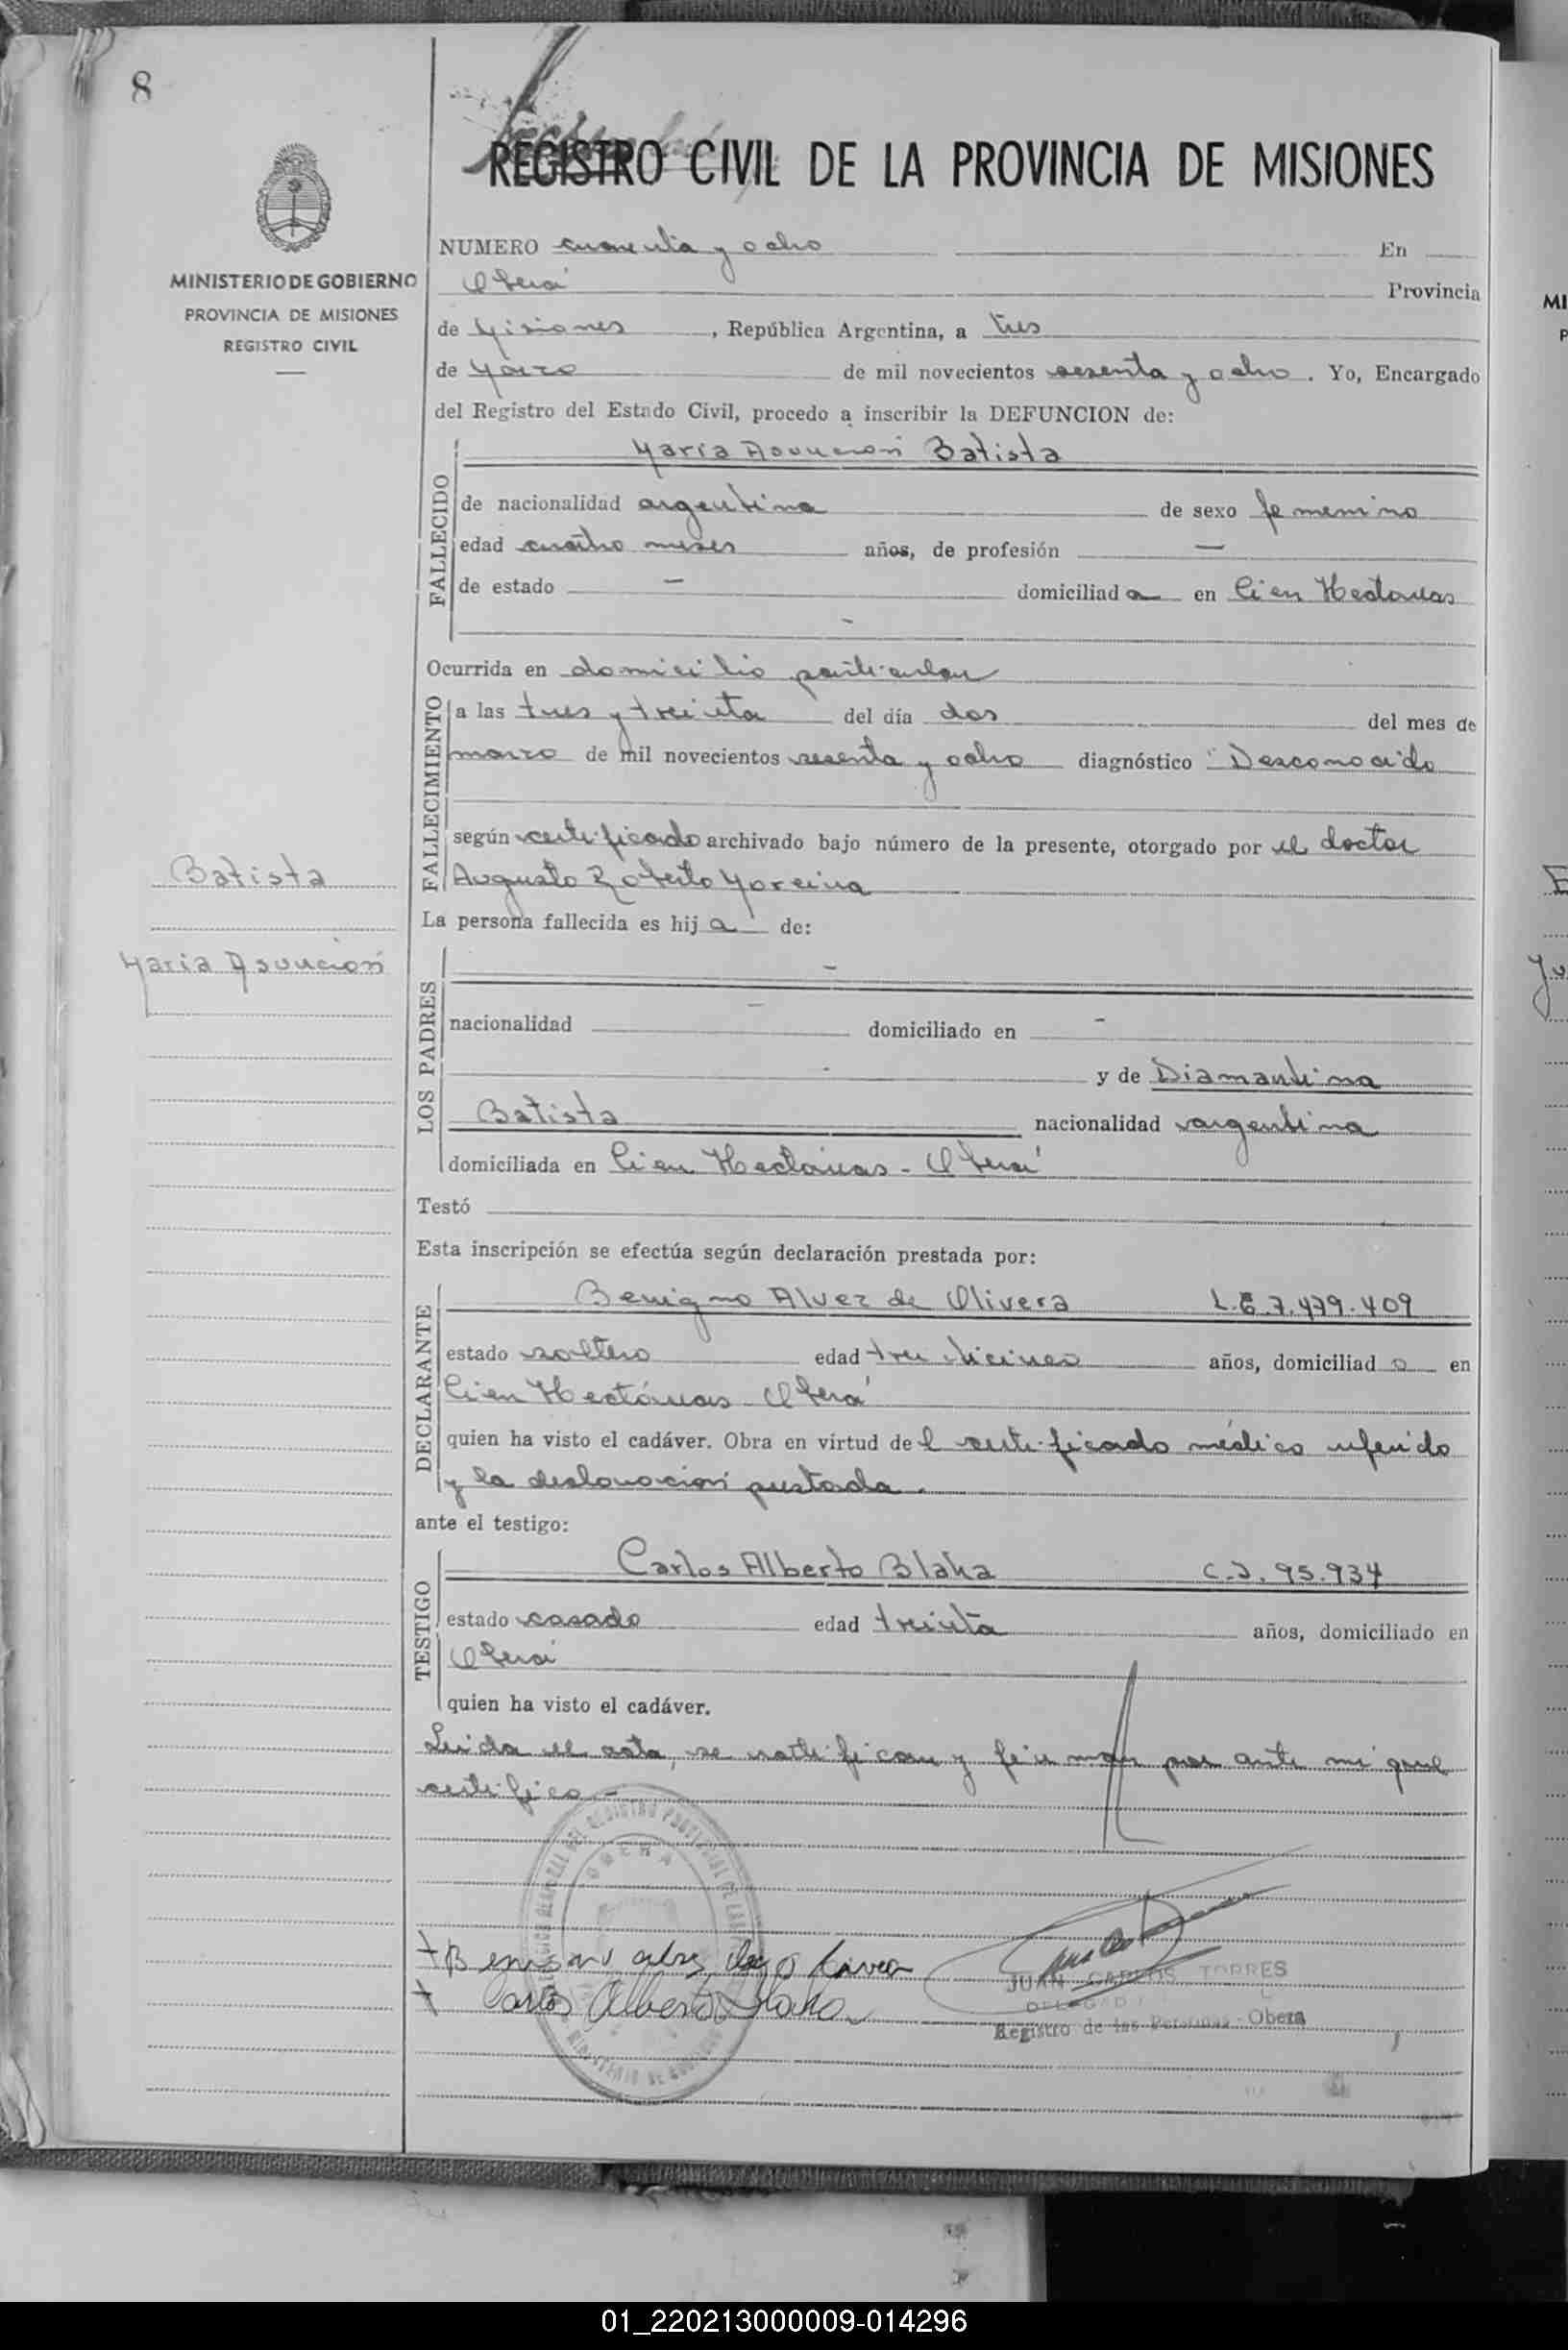 8
REGISTRO CIVIL DE LA PROVINCIA DE MISIONES
MINISTERIO DE GOBIERNO
PROVINCIA DE MISIONES
REGISTRO CIVIL
NUMERO cuarenta y ocho En
Oberá Provincia
de Misiones, República Argentina, a tres
de Marzo de mil novecientos sesenta y ocho. Yo, Encargado
del Registro del Estado Civil, procedo a inscribir la DEFUNCION de:
FALLECIDO
Maria Asunción Batista
de nacionalidad argentina de sexo femenino
edad cuatro meses años, de profesión —
de estado — domiciliada en Cien Hectareas
-
Ocurrida en domicilio particular
FALLECIMIENTO
a las tres y treinta del día dos del mes de
marzo de mil novecientos sesenta y ocho diagnóstico Desconocido
según certificado archivado bajo número de la presente, otorgado por el doctor
Augusto Roberto Moreira
Batista
Maria Asunción
La persona fallecida es hija de:
LOS PADRES
-
nacionalidad — domiciliado en -
- y de Diamantina
Batista nacionalidad argentina
domiciliada en Cien Hectáreas - Oberá
Testó
Esta inscripción se efectúa según declaración prestada por:
DECLARANTE
Benigno Alvez de Olivera L.E 7.479.409
estado soltero edad treinticinco años, domiciliado en
Cien Hectáreas - Oberá
quien ha visto el cadáver. Obra en virtud del certificado médico referido
y la declaración prestada.
ante el testigo:
TESTIGO
Carlos Alberto Blaha C.I. 95.934
estado casado edad treinta años, domiciliado en
Oberá
quien ha visto el cadáver.
Leida el acta, se ratifican y firman por ante mi que
certifico -
OBERA
Carlos Alberto Blaha
JUAN CARLOS TORRES
DELEGADO
Registro de las Personas - Oberá
01_220213000009-014296